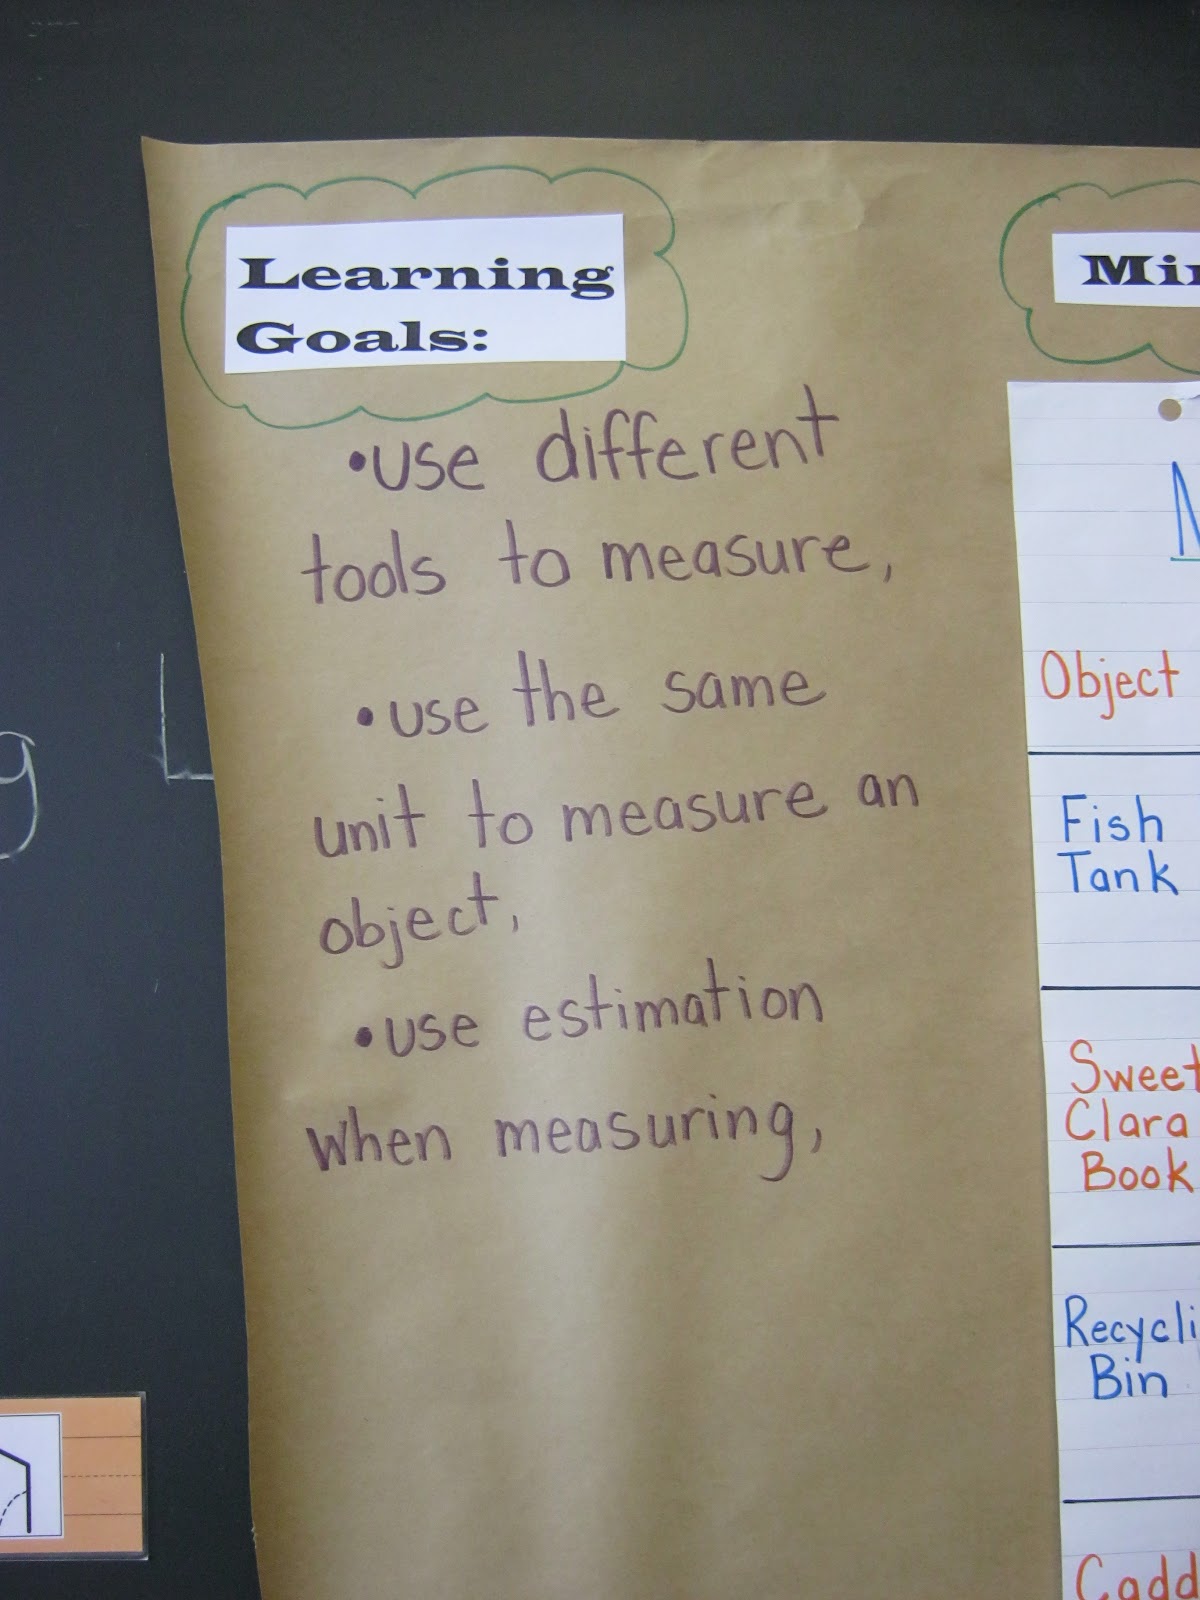 Learning
Goals:
•use different
tools to measure,
•use the same
unit to measure an
object,
•use estimation
when measuring,
Object
Fish
Tank
Sweet
Clara
Book
Bin